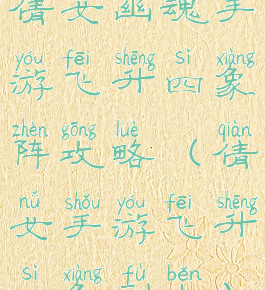 倩女幽魂手
yóu fēi shēng sì xiàng
游飞升四象
zhèn gōng luè qiàn
阵攻略(倩
nǚ shǒu yóu fēi shēng
女手游飞升
sì xiàng fù běn